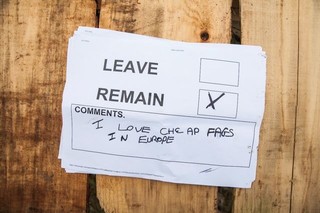 LEAVE
REMAIN X
COMMENTS.
I LOVE CHEAP FAGS
IN EUROPE